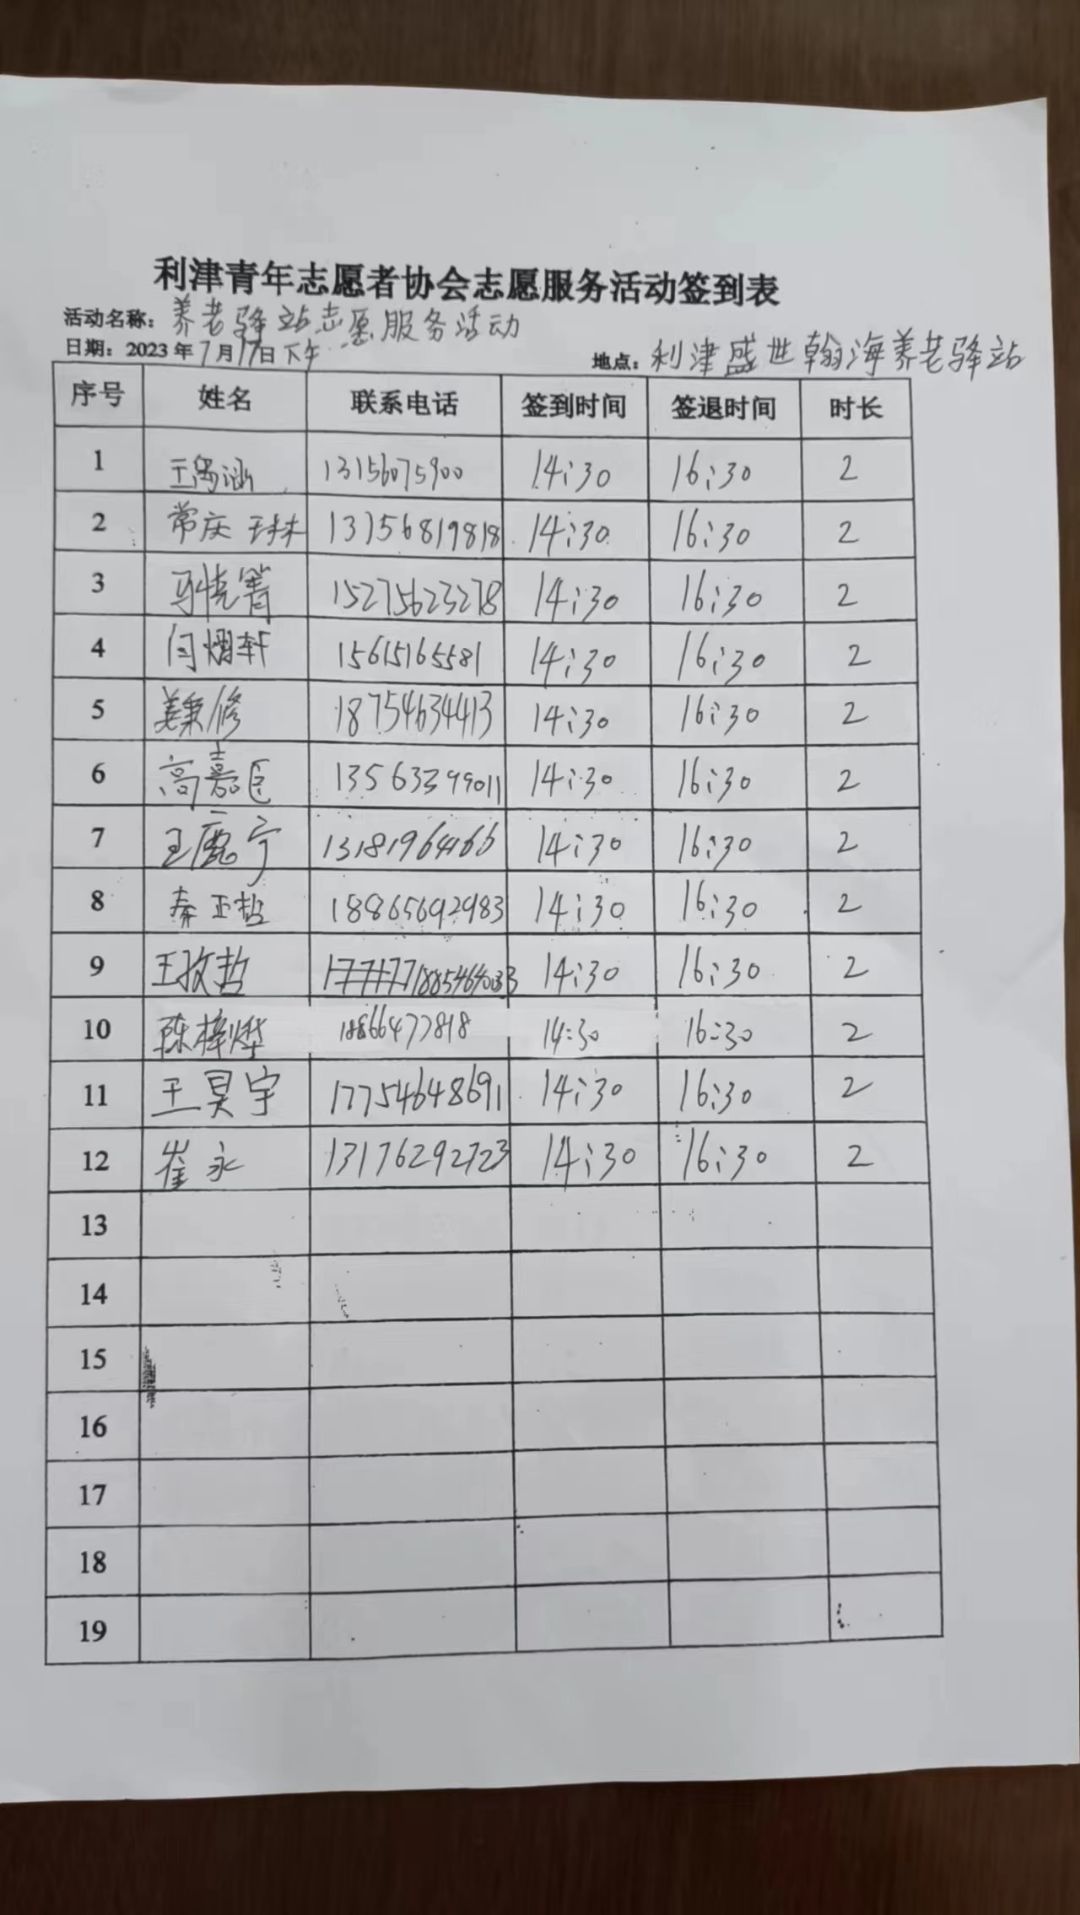 利津青年志愿者协会志愿服务活动签到表
活动名称：养老驿站志愿服务活动
日期：2023年7月17日下午 地点：利津盛世翰海养老驿站
序号 姓名 联系电话 签到时间 签退时间 时长
1 王禹涵 13156075900 14:30 16:30 2
2 常庆琳 13756819818 14:30 16:30 2
3 马悦箐 15275623278 14:30 16:30 2
4 闫熠轩 15615165581 14:30 16:30 2
5 姜秉修 18754634413 14:30 16:30 2
6 高嘉 13563399011 14:30 16:30 2
7 王鹿宁 13181964166 14:30 16:30 2
8 秦正哲 18865692983 14:30 16:30 2
9 王孜哲 14:30 16:30 2
10 陈梓烨 18866477818 14:30 16:30 2
11 王昊宇 17754648691 14:30 16:30 2
12 崔永 13176292723 14:30 16:30 2
13
14
15
16
17
18
19